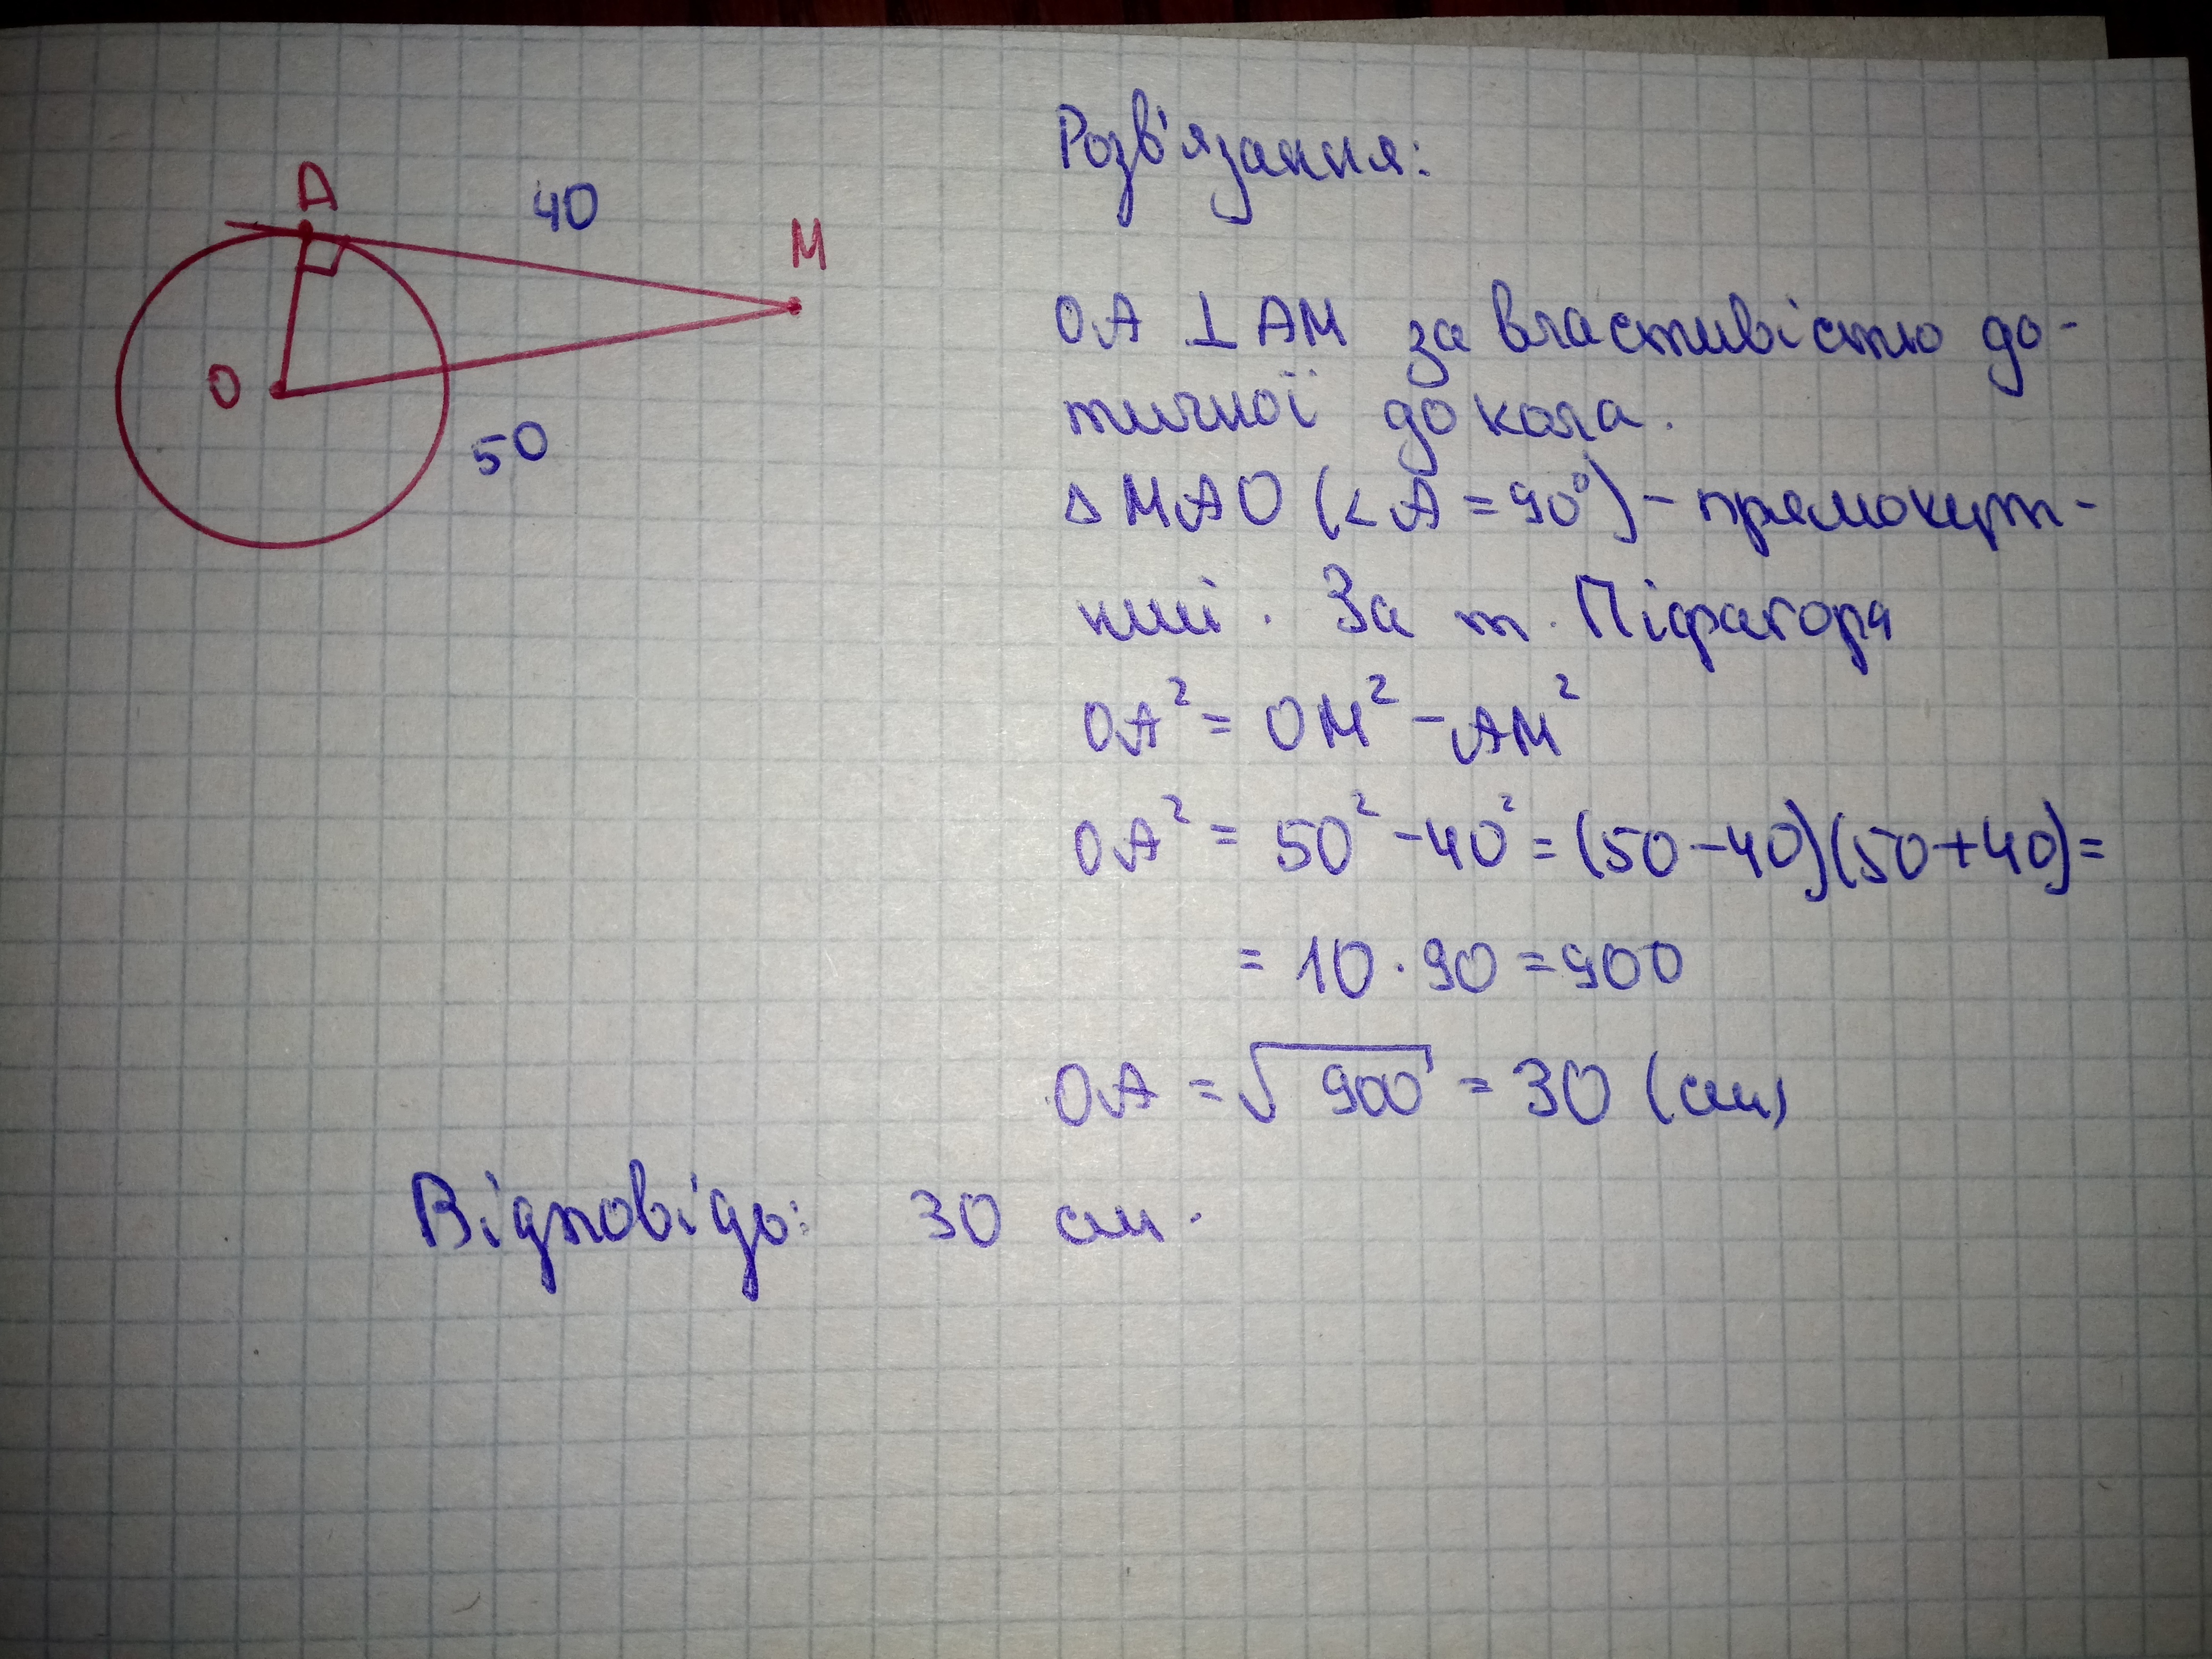 A
40
M
O
50
Розв'язання:
OA ⊥ AM за властивістю до-
тичної до кола.
Δ MAO (<A = 90°) – прямокут-
ний. За т. Піфагора
OA² = OM² – AM²
OA² = 50² – 40² = (50 – 40)(50 + 40) =
= 10 · 90 = 900
OA = √900 = 30 (см)
Відповідь: 30 см.